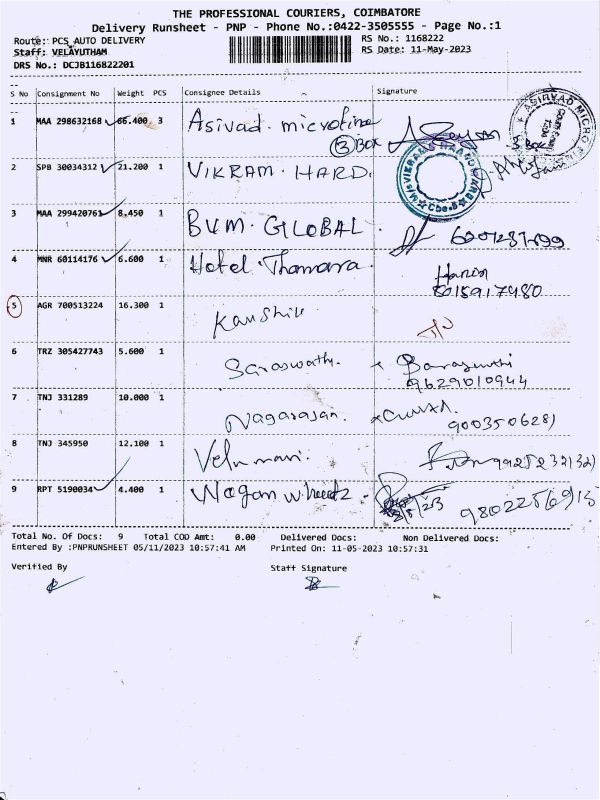 THE PROFESSIONAL COURIERS, COIMBATORE
Delivery Runsheet - PNP - Phone No.:0422-3505555 - Page No.:1
Route: PCS AUTO DELIVERY RS No.: 1168222
Staff: VELAYUTHAM RS Date: 11-May-2023
DRS No.: DCJB116822201
S No Consignment No Weight PCS Consignee Details Signature
1 MAA 298632168 66.400 3 Asirvad. microfina
3 BOX 3 BOX
ASIRVAD MICRO
2 SPB 30034312 21.200 1 VIKRAM. HARD.
M/s VIKRAM HARDWARE Cbe
3 MAA 299420761 8.450 1 BVM. GLOBAL.
4 MNR 60114176 6.600 1 Hotel. Thamara.
8015917480
5 AGR 700513224 16.300 1 Kaushik
6 TRZ 305427743 5.600 1 Saraswathy.
9629010944
7 TNJ 331289 10.000 1 Nagarajan.
9003506281
8 TNJ 345950 12.100 1 Velumani.
9 RPT 5190034 4.400 1 Wagan wheelz
Total No. Of Docs: 9 Total COD Amt: 0.00 Delivered Docs: Non Delivered Docs:
Entered By :PNPRUNSHEET 05/11/2023 10:57:41 AM Printed On: 11-05-2023 10:57:31
Verified By Staff Signature